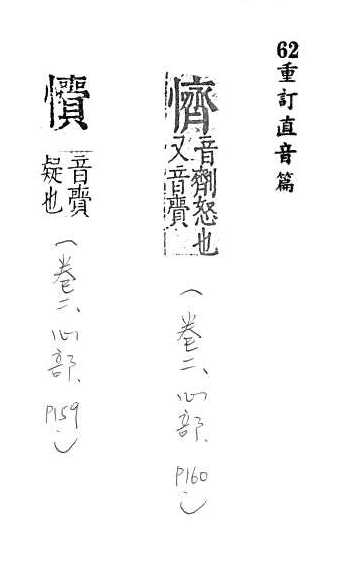 62重訂直音篇
懠
音劑怒也
又音賷
(卷二、心部、P160)
音賷
疑也
(卷二、心部、P159)